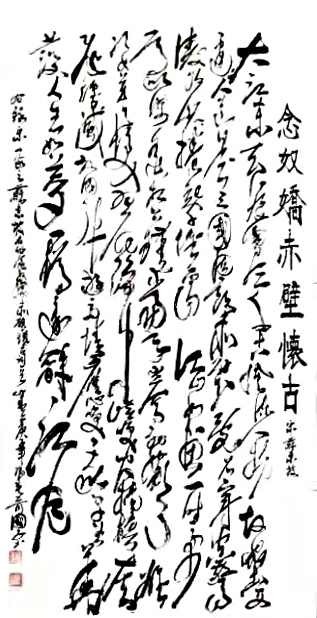 念奴嬌赤壁懷古
宋蘇東坡
大江東去浪淘盡千古風流人物故壘西
邊人道是三國周郎赤壁亂石穿空驚濤
岸捲起千堆雪江山如畫一時多少
豪傑遙想公瑾當年小喬初嫁了雄
姿英發羽扇綸巾談笑間檣櫓灰
飛煙滅故國神遊多情應笑我早生華
髮人生如夢一樽還酹江月